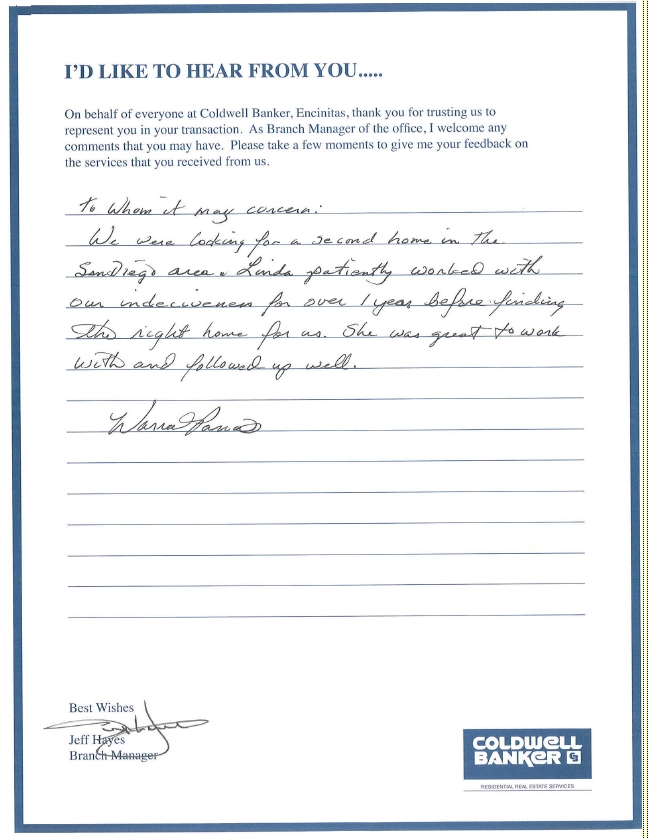 I'D LIKE TO HEAR FROM YOU.....
On behalf of everyone at Coldwell Banker, Encinitas, thank you for trusting us to
represent you in your transaction. As Branch Manager of the office, I welcome any
comments that you may have. Please take a few moments to give me your feedback on
the services that you received from us.
To Whom it may concern:
We were looking for a second home in the
San Diego area & Linda patiently worked with
our indeciveness for over 1 year before finding
the right home for us. She was great to work
with and followed up well.
Best Wishes
Jeff Hayes
Branch Manager
COLDWELL
BANKER
RESIDENTIAL REAL ESTATE SERVICES